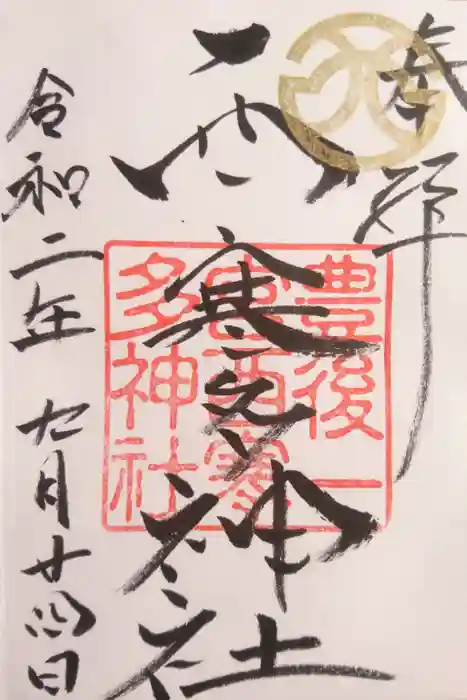 奉拝
西寒多神社
豊後一
宮西寒
多神社
令和二年九月廿四日